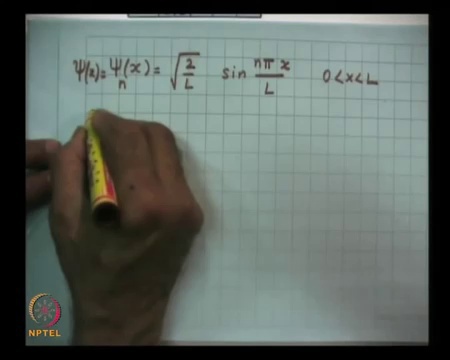 Ψ(x) = Ψ_n(x) = √(2/L) sin nπx/L 0<x<L
NPTEL